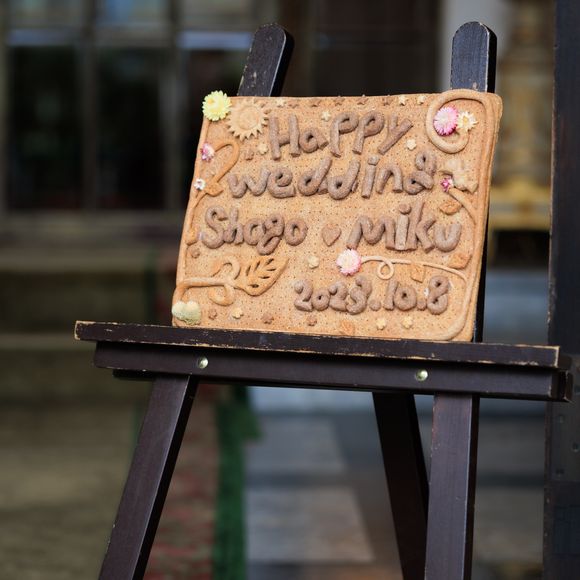 Happy
wedding
Shogo ♥ miku
2023.10.8